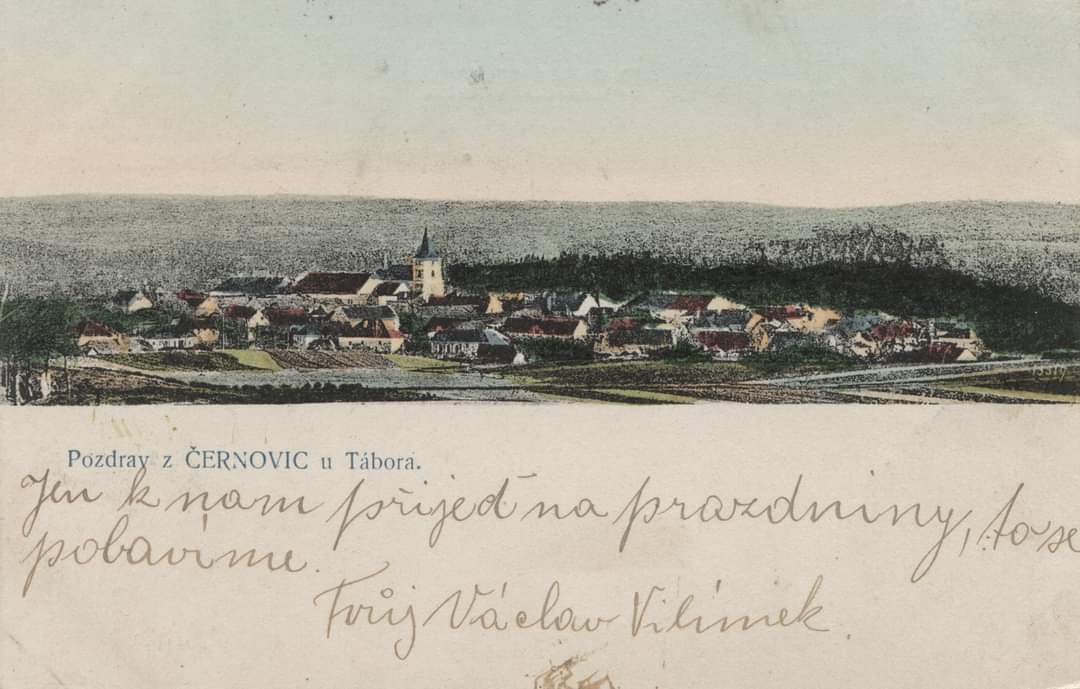 Pozdrav z ČERNOVIC u Tábora.
Jen k nam přijeď na prazdniny, to se
pobavíme.
Tvůj Václav Vilímek.